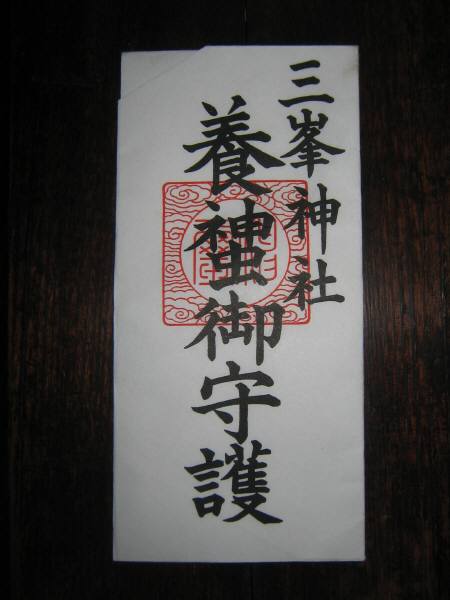 三峯神社
養䗝御守護